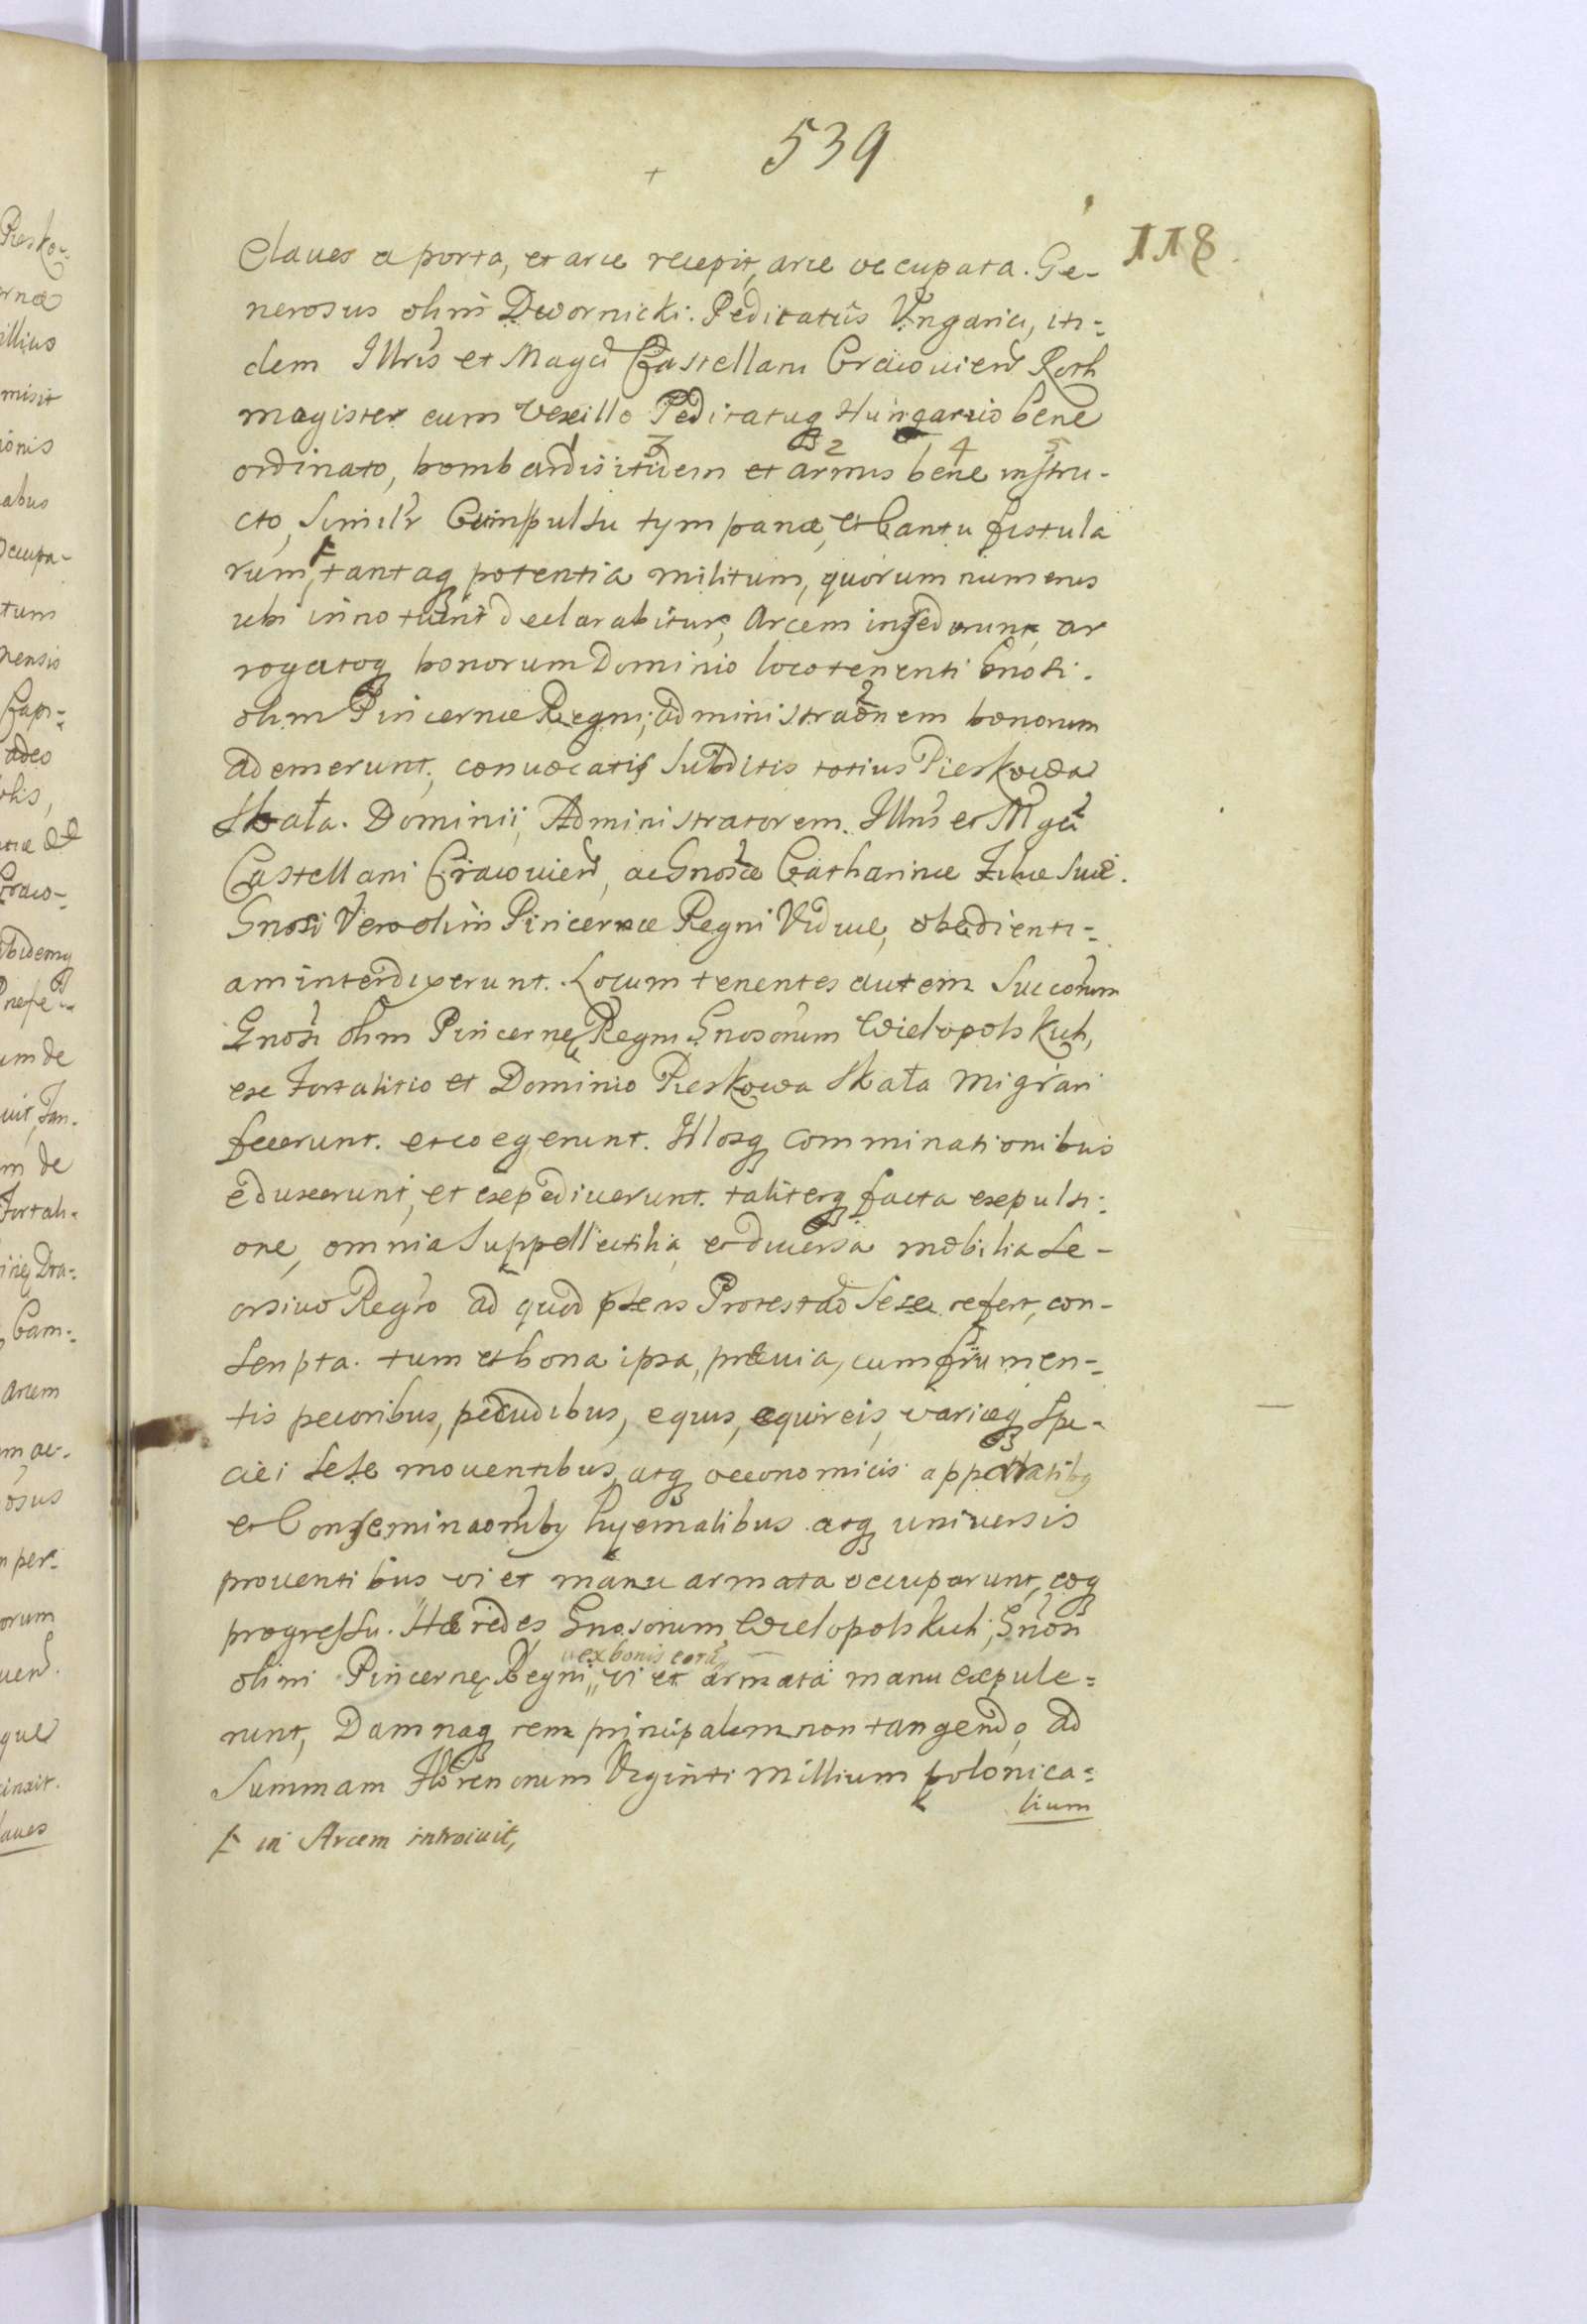 539
118
Claues a porta, et arce recepit, arce occupata. Ge-
nerosus olim Dwornicki. Peditatus Vngarici, iti=
dem Illris et Magci Castellani Cracouien Roth
magister cum Vexillo Peditatuq Hungarico bene
ordinato, bombardis itidem et armis bene instru-
1 3 2 4 5
cto, Similr Cum pulsu tympanæ, et Cantu fistula
rum, tantaq potentia militum, quorum numerus
ubi innotuerit declarabitur, Arcem insederunt, ar
rogatoq bonorum Dominio locotenenti Gnosi.
olim Pincernæ Regni, administraonem bonorum
ademerunt, conuocatis Subditis totius Pieskowa
Skała. Dominii, Administratorem. Illris et Mgci
Castellani Cracouien, ac Gnosæ Catharinæ Filiæ Suæ.
Gnosi Vero olim Pincernæ Regni Viduæ, obedienti=
am interdixerunt. Locum tenentes autem Succorum
Gnosi olim Pincernę Regni Gnosorum Wielopolskich,
ex Fortalitio et Dominio Pieskowa Skała migrari
fecerunt. et coegerunt. Illosq comminationibus
eduxerunt, et expediuerunt. taliterq facta expulsi:
one, omnia Suppellectilia, et diuersa mobilia Se-
orsiuo Regro ad quod pſens Protestao Sese refert, con-
scripta. tum et bona ipsa, præuia, cum frumen=
tis pecoribus, pecudibus, equis, equireis, variæq Spe-
ciei sese mouentibus, atq oeconomicis apparatiby
et Conseminaoniby hyemalibus atq uniuersis
prouentibus vi et manu armata occuparunt, eoq
progressu. Hæredes Gnosorum Wielopolskich, Gnosi
ex bonis eorū
olim Pincernę Regni, vi et armata manu expule=
runt, Damnaq rem principalem non tangendo, ad
Summam Florenorum Viginti Millium polonica=
lium
in Arcem introiuit,